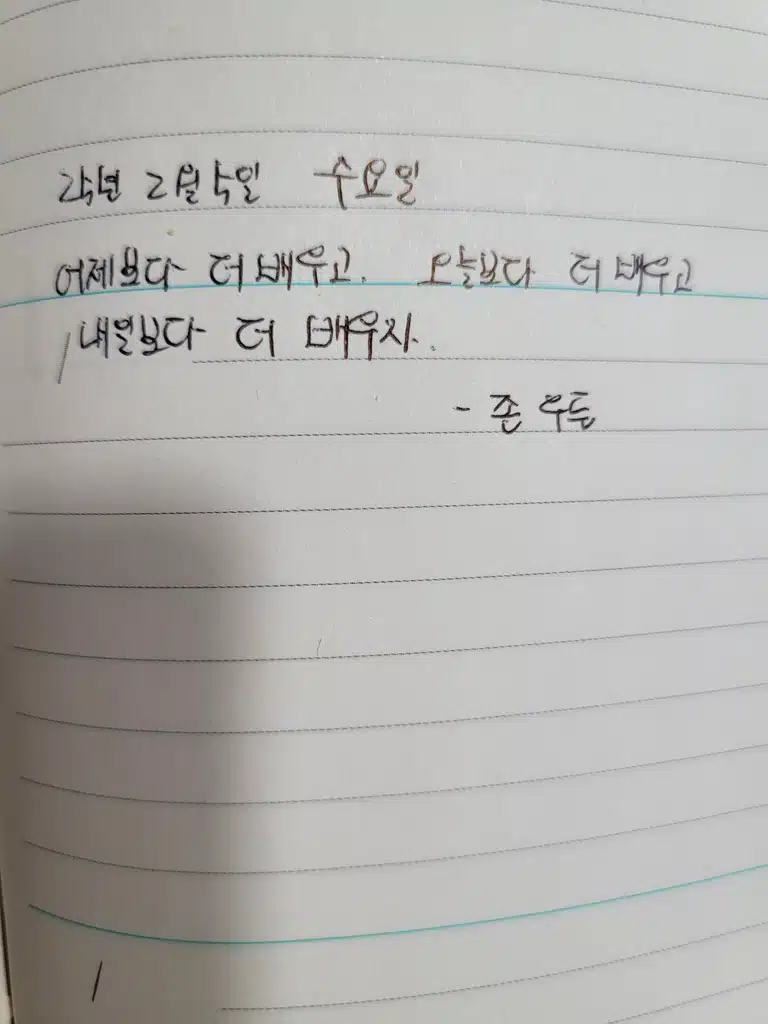 2월 일 수요일
어제보다 더 배우고. 오늘보다 더 배우고
내일보다 더 배우자.
- 존 우든